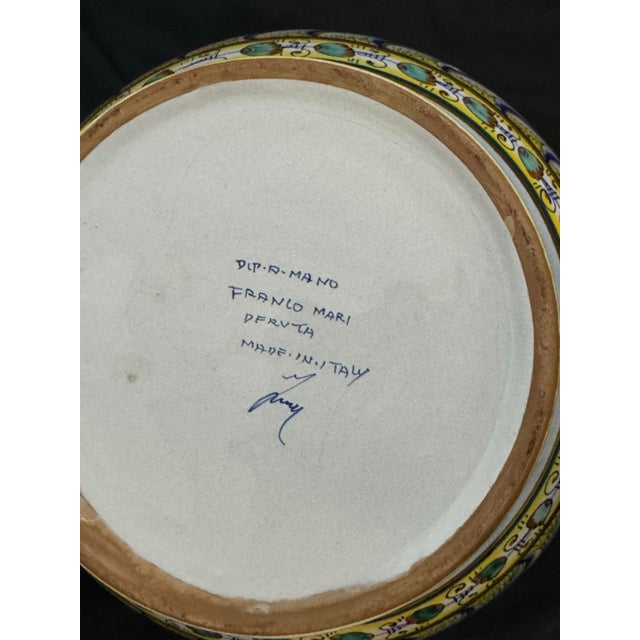 DIP·A·MANO
FRANCO MARI
DERUTA
MADE·IN·ITALY